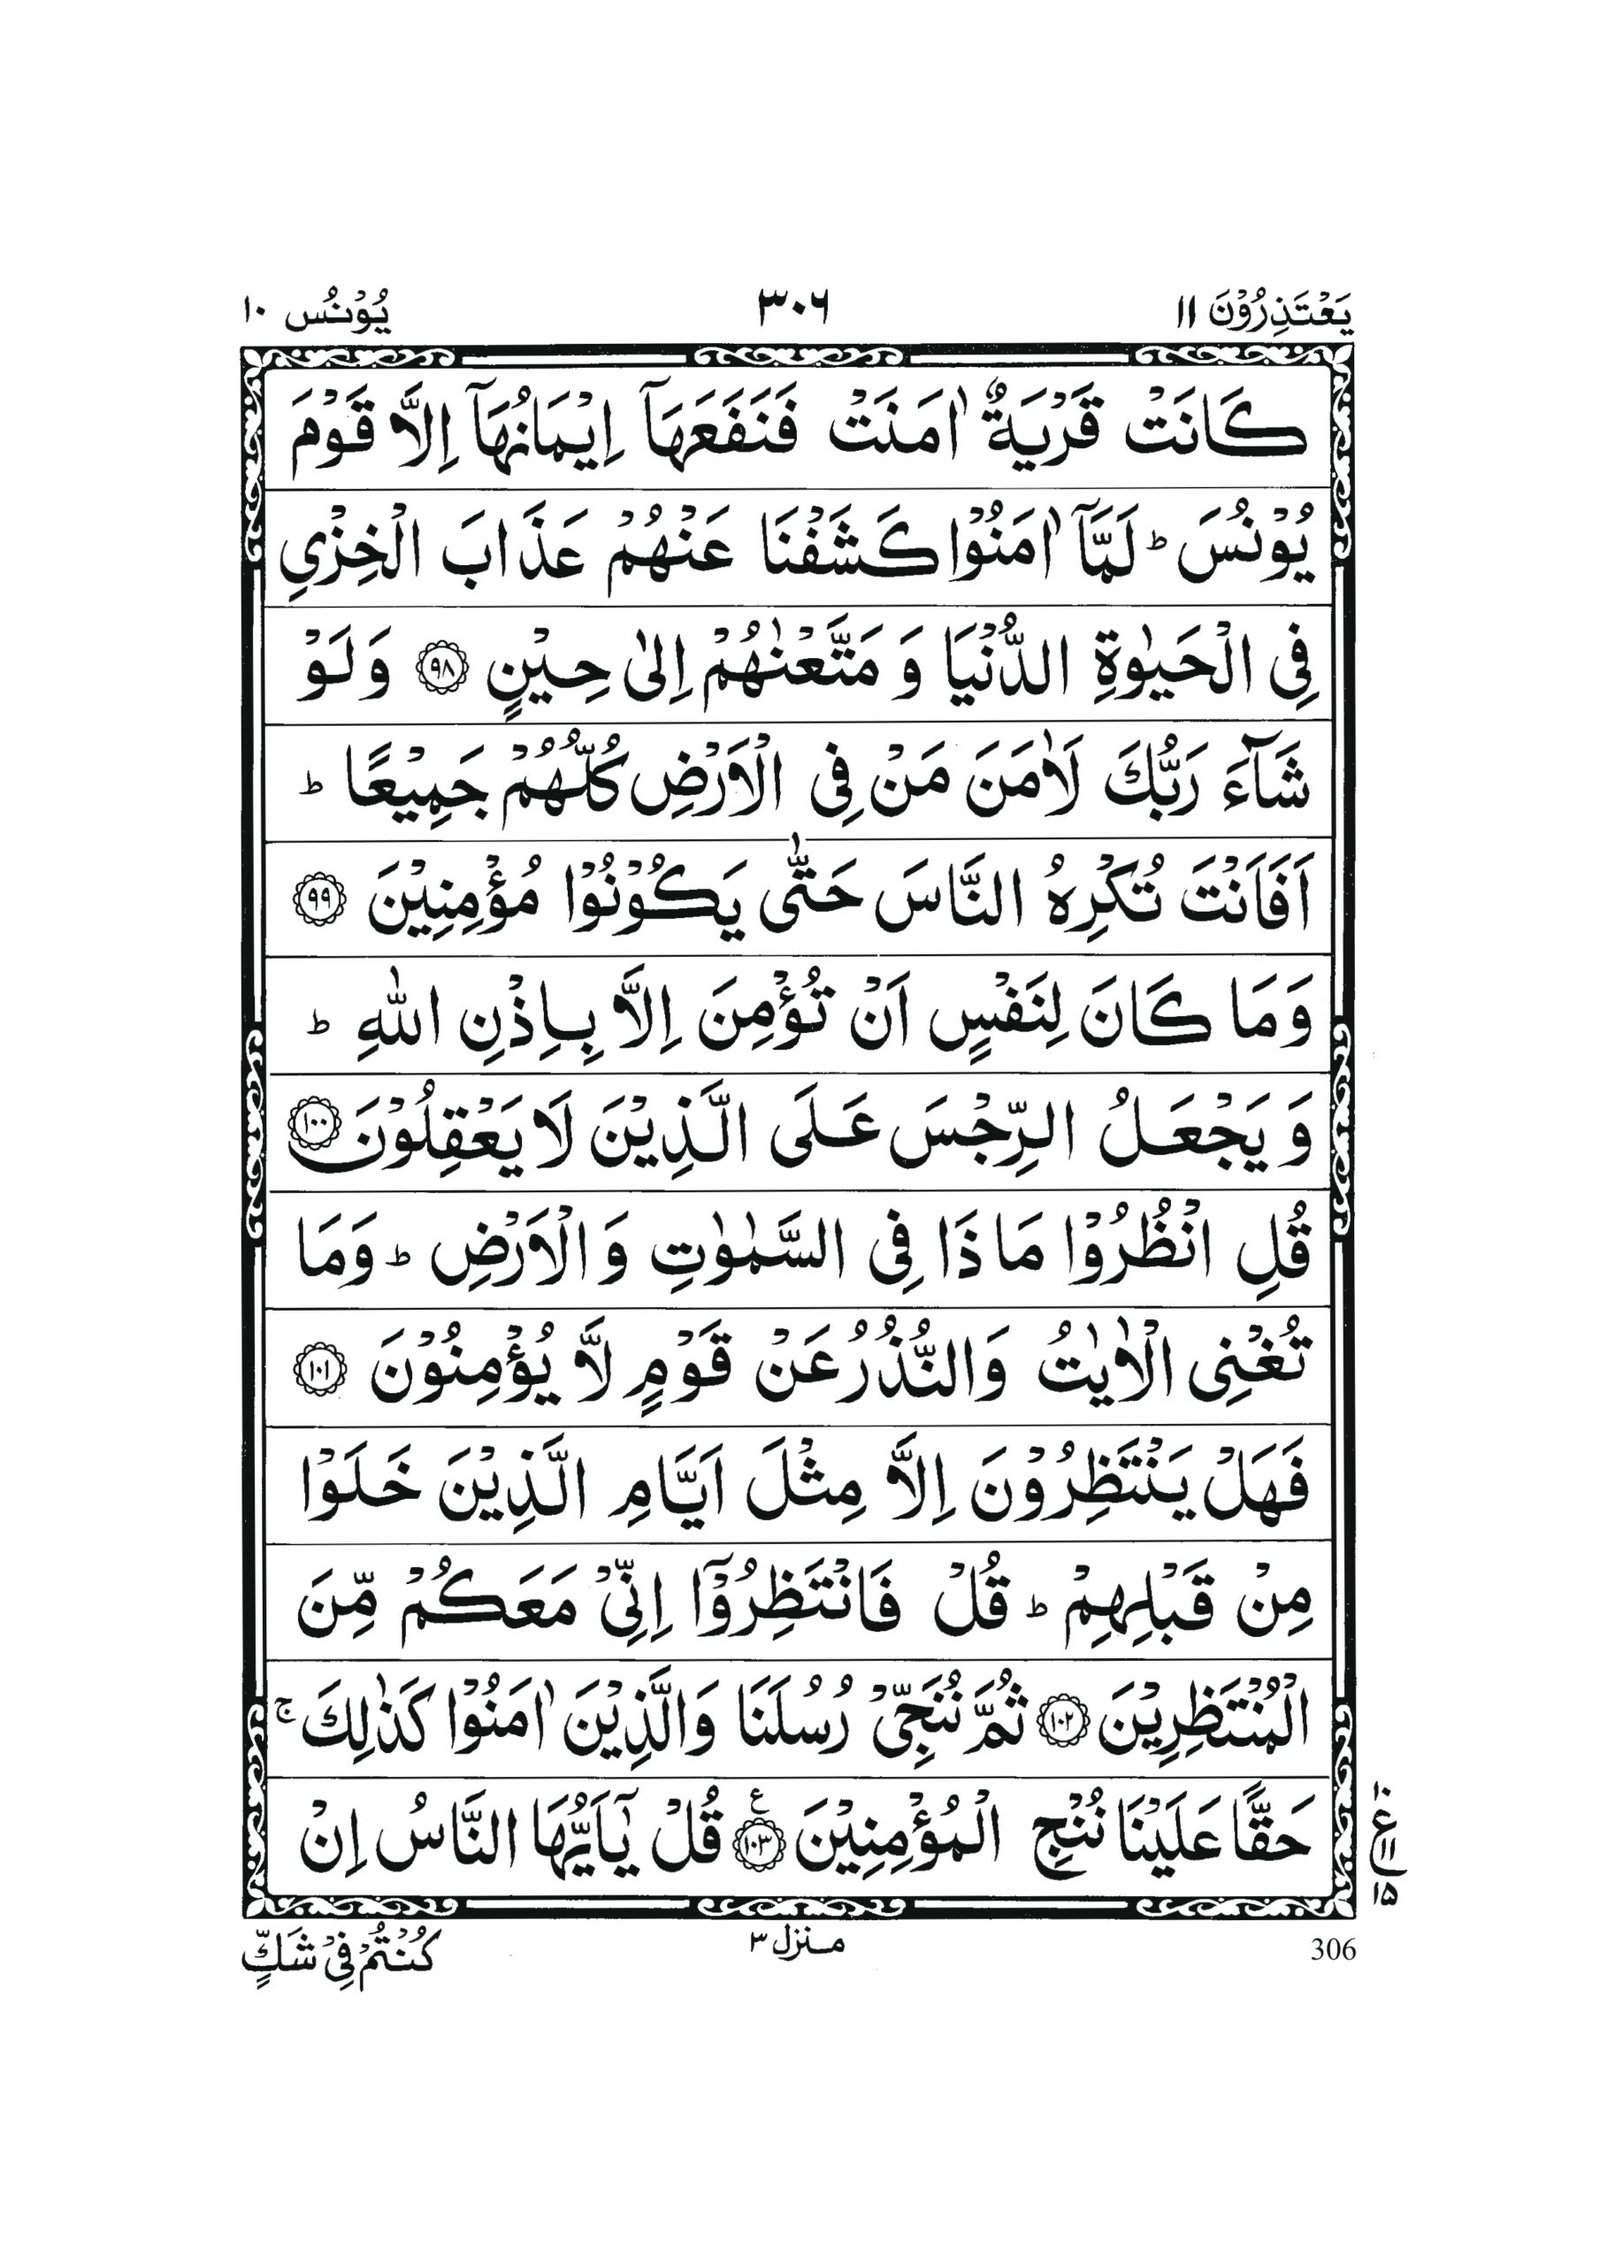 یَعْتَذِرُوْنَ ۱۱
۳۰۶
یُوْنُس ۱۰
كَانَتْ قَرْیَةٌ اٰمَنَتْ فَنَفَعَهَاۤ اِیْمَانُهَاۤ اِلَّا قَوْمَ
یُوْنُسَ ؕ لَمَّاۤ اٰمَنُوْا كَشَفْنَا عَنْهُمْ عَذَابَ الْخِزْیِ
فِی الْحَیٰوةِ الدُّنْیَا وَ مَتَّعْنٰهُمْ اِلٰی حِیْنٍ ﴿۹۸﴾ وَ لَوْ
شَآءَ رَبُّكَ لَاٰمَنَ مَنْ فِی الْاَرْضِ كُلُّهُمْ جَمِیْعًا ؕ
اَفَاَنْتَ تُكْرِهُ النَّاسَ حَتّٰی یَكُوْنُوْا مُؤْمِنِیْنَ ﴿۹۹﴾
وَ مَا كَانَ لِنَفْسٍ اَنْ تُؤْمِنَ اِلَّا بِاِذْنِ اللّٰهِ ؕ
وَ یَجْعَلُ الرِّجْسَ عَلَی الَّذِیْنَ لَا یَعْقِلُوْنَ ﴿۱۰۰﴾
قُلِ انْظُرُوْا مَا ذَا فِی السَّمٰوٰتِ وَ الْاَرْضِ ؕ وَ مَا
تُغْنِی الْاٰیٰتُ وَ النُّذُرُ عَنْ قَوْمٍ لَّا یُؤْمِنُوْنَ ﴿۱۰۱﴾
فَهَلْ یَنْتَظِرُوْنَ اِلَّا مِثْلَ اَیَّامِ الَّذِیْنَ خَلَوْا
مِنْ قَبْلِهِمْ ؕ قُلْ فَانْتَظِرُوْۤا اِنِّیْ مَعَكُمْ مِّنَ
الْمُنْتَظِرِیْنَ ﴿۱۰۲﴾ ثُمَّ نُنَجِّیْ رُسُلَنَا وَ الَّذِیْنَ اٰمَنُوْا كَذٰلِكَ ۚ
حَقًّا عَلَیْنَا نُنْجِ الْمُؤْمِنِیْنَ ﴿۱۰۳﴾ ع قُلْ یٰۤاَیُّهَا النَّاسُ اِنْ
۱۰ ع ۱۱ ۱۵
كُنْتُمْ فِیْ شَكٍّ
منزل ۳
306